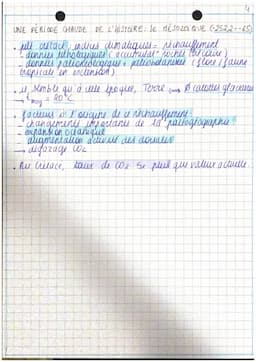 4
UNE PÉRIODE CHAUDE DE L'HISTOIRE: le MÉSOZOÏQUE (-252,2--65)
• pdt crétacé, indices climatiques → réchauffement
- données lithologiques (accumulat° roches
- données paléoécologiques + paléontologiques (flore/faune
tropicale en extension)
• il semble qu'à cette époque, Terre → Ø calottes glaciaires
→ t moy = 20°C
• facteurs à l'origine de ce réchauffement:
- changements importants de la paléogéographie
- expansion océanique
- augmentation activité des dorsales
→ dégazage CO2
• Au Crétacé, taux de CO2 5x plus que valeur actuelle.